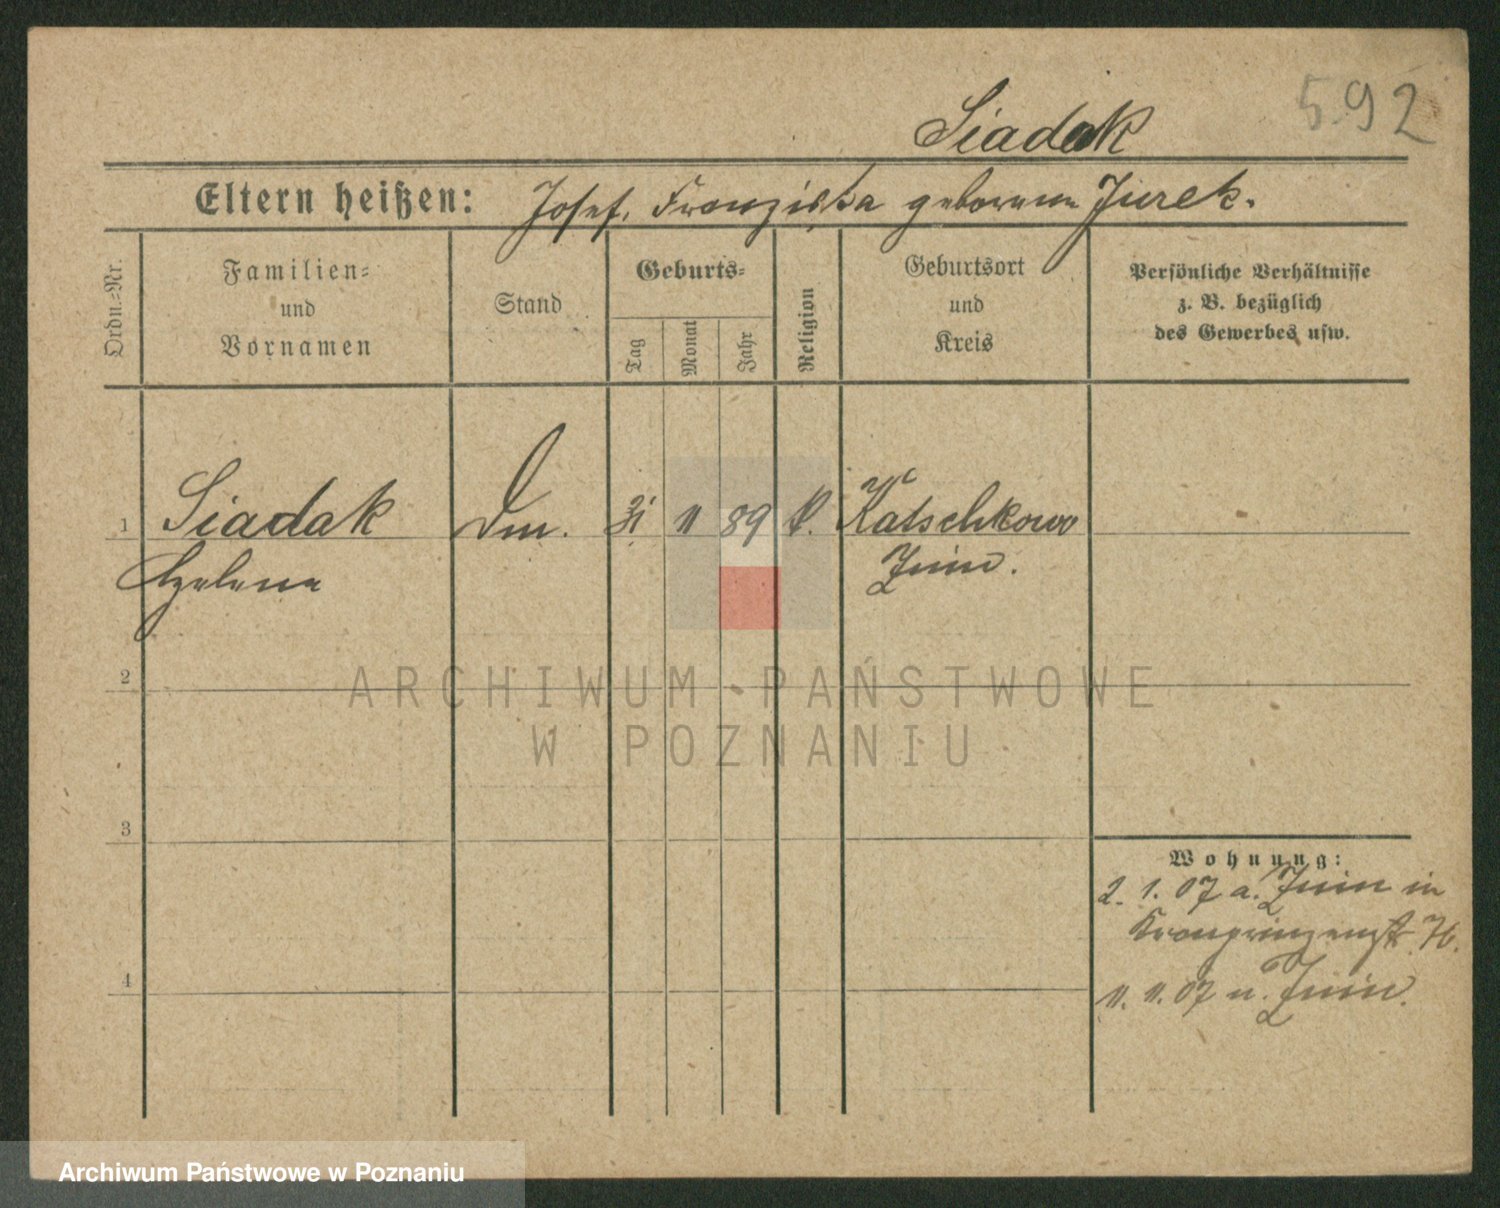 592
Siadak
Eltern heißen: Josef, Franziska geborene Jurek.
Ordn.-Nr.
Familien-
und
Vornamen
Stand
Geburts-
Tag
Monat
Jahr
Religion
Geburtsort
und
Kreis
Persönliche Verhältnisse
z. B. bezüglich
des Gewerbes usw.
1 Siadak 11 89 k. Katschkowo
Helena
2
ARCHIWUM PAŃSTWOWE
W POZNANIU
3
Wohnung:
2. 1. 07 a. in
Kronprinzenst.
4
11. 11. 07 n.
Archiwum Państwowe w Poznaniu